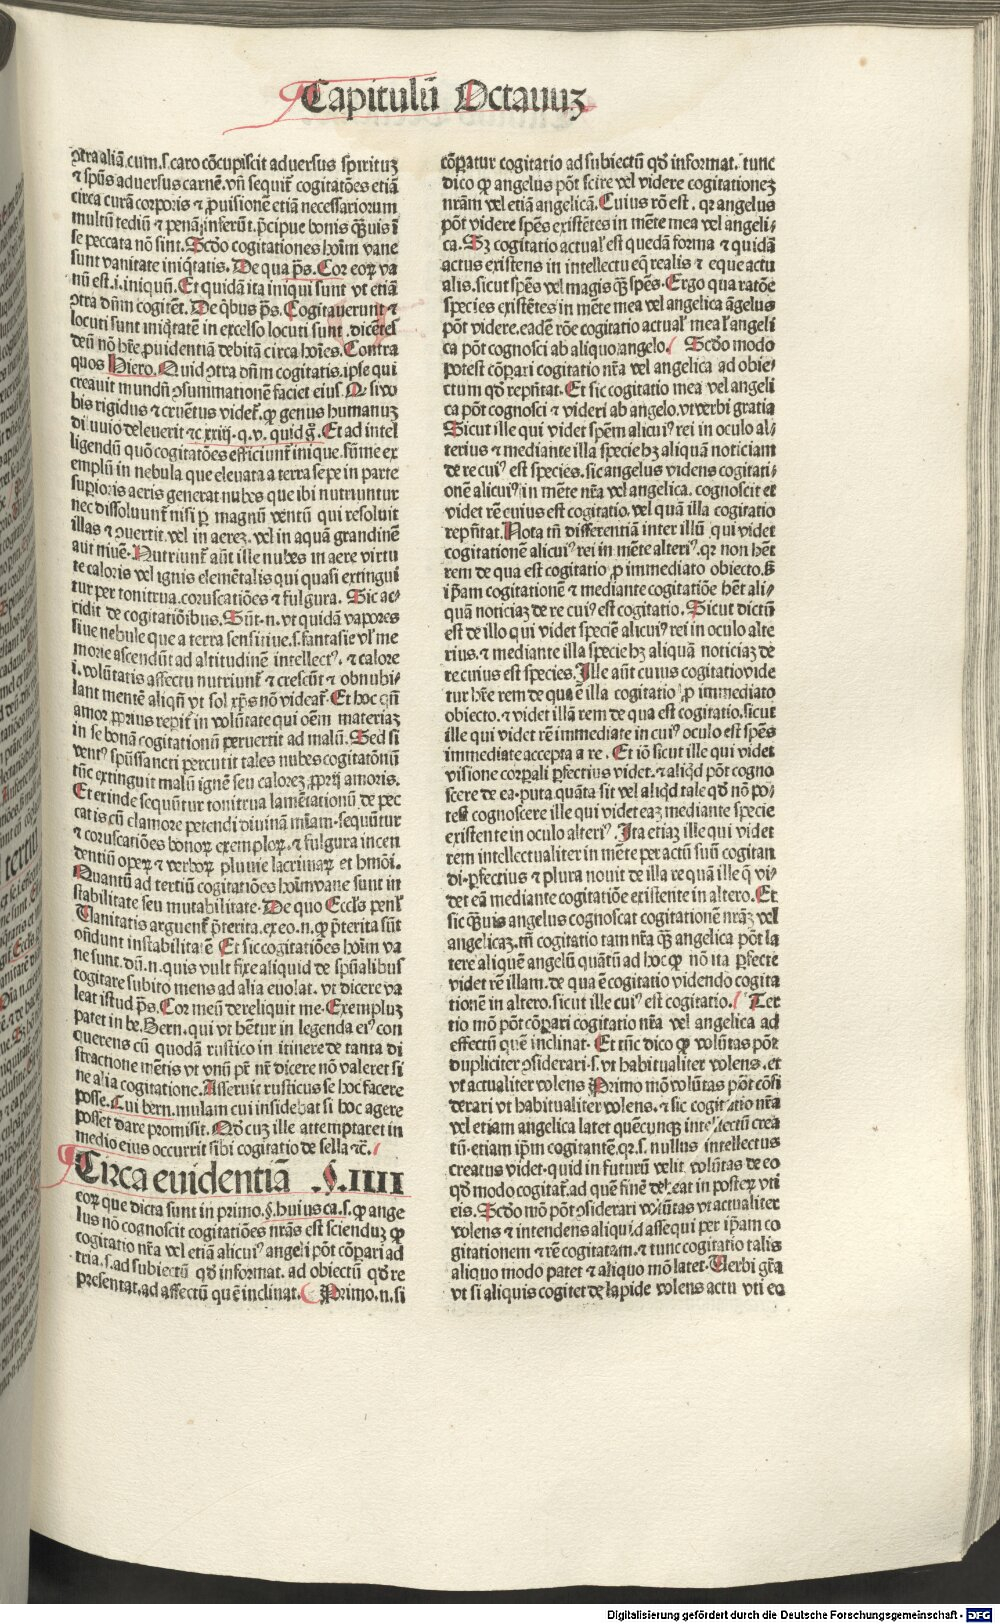 Capitulū Octauuꝫ
ↄtra aliā.cum.ſ.caro cōcupiſcit aduerſus ſpirituꝫ
⁊ ſpūs aduerſus carnē.vñ ſequit᷑ cogitatōes etiā
circa curā corporis ⁊ ꝓuiſionē etiā neceſſariorum
multū tediū ⁊ penā inferūt.p̄cipue bonis qȝuis ī
ſe peccata nō ſint.Scd̓o cogitationes hoīm vane
ſunt vanitate iniq̇tatis.De qua p̄s.Cor eoꝝ va
nū eſt.i.iniquū.Et quidā ita iniqui ſunt vt etiā
ↄtra dn̄m cogitēt.De q̇bus p̄s.Cogitauerunt ⁊
locuti ſunt iniq̇tatē in excelſo locuti ſunt.dicētes
deū nō hr̄e ꝓuidentiā debitā circa hoīes.Contra
quos Hiero.Quid ↄtra dn̄m cogitatis.ipſe qui
creauit mundū ↄſummationē faciet eius.Q ſi vo
bis rigidus ⁊ cruētus videt᷑.ꝙ genus humanuꝫ
diluuio deleuerit ⁊c.xxiij.q.v.quid g̃.Et ad intel
ligendū quō cogitatōes efficiunt᷑ inique.ſūme ex
emplū in nebula que eleuata a terra ſepe in parte
ſuꝑioris aeris generat nubes que ibi nutriuntur
nec diſſoluunt᷑ niſi ꝑ magnū ventū qui reſoluit
illas ⁊ ↄuertit.vel in aereꝫ.vel in aquā grandinē
aut niuē.Nutriunt᷑ aūt ille nubes in aere virtu
te caloris vel ignis elemētalis qui quaſi extingui
tur per tonitrua.coruſcatiōes ⁊ fulgura. Sic ac⸗
cidit de cogitatiōibus.Sūt.n.vt quidā vapores
ſiue nebule que a terra ſenſitiue.ſ.fantaſie vl̓ me
morie aſcendūt ad altitudinē intellectꝰ.⁊ calore
i.volūtatis affectu nutriunt᷑ ⁊ creſcūt ⁊ obnubi⸗
lant mentē aliqn̄ vt ſol xp̄s nō videat᷑.Et hoc qn̄
amor ꝓprius reꝑit᷑ in volūtate qui oēm materiaꝫ
in ſe bonā cogitationū peruertit ad malū.Sed ſi
ventꝰ ſpūſſancti percutit tales nubes cogitatōnū
tūc extinguit malū ignē ſeu caloreꝫ ꝓprij amoris.
Et exinde ſequūtur tonitrua lamētationū de pec
catis cū clamore petendi diuinā mīam.ſequūtur
⁊ coruſcatiōes bonoꝝ exemploꝝ.⁊ fulgura incen
dentiū opeꝝ ⁊ verboꝝ pluuie lacrimaꝝ et hmōi.
Quantū ad tertiū cogitatiōes hoīm vane ſunt in
ſtabilitate ſeu mutabilitate.De quo Eccl̓s penl̓t
Uanitatis arguent᷑ p̄terita.ex eo.n.ꝙ p̄terita ſūt
oſtdunt inſtabilitatē Et ſic cogitatiōes hoīm va
ne ſunt.dū.n.quis vult fixe aliquid de ſpūalibus
cogitare ſubito mens ad alia euolat. vt dicere va
leat iſtud pˢ̄.Cor meū dereliquit me.Exempluꝫ
patet in be.Bern.qui vt hētur in legenda eiꝰ con
querens cū quodā ruſtico in itinere de tanta di
ſtractione mētis vt vnū pr̄ nr̄ dicere nō valeret ſi
ne alia cogitatione.Aſſeruit ruſticus ſe hoc facere
poſſe.Cui bern.mulam cui inſidebat ſi hoc agere
poſſet dare promiſit.Qd̓ cuꝫ ille attemptaret in
medio eius occurrit ſibi cogitatio de ſella ⁊c.
Circa euidentiā .§.IIII
eoꝝ que dicta ſunt in primo.§.huius ca.ſ.ꝙ ange
lus nō cognoſcit cogitatiōes nr̄as eſt ſciendūꝫ ꝙ
cogitatio nr̄a vel etiā alicuiꝰ angeli pōt cōpari ad
tria.ſ.ad ſubiectū qd̓ informat.ad obiectū qd̓ re
preſentat.ad affectū quē inclinat. Primo.n.ſi
cōꝑatur cogitatio ad ſubiectū qd̓ informat.tunc
dico ꝙ angelus pōt ſcire vel videre cogitationeꝫ
nr̄am vel etiā angelicā.Cuius rō eſt. qꝛ angelus
pōt videre ſpēs exiſtētes in mēte mea vel angeli⸗
ca.Sꝫ cogitatio actual̓ eſt quedā forma ⁊ quidā
actus exiſtens in intellectu eq̄ realis ⁊ eque actu
alis.ſicut ſpēs vel magis qȝ ſpēs.Ergo qua ratōe
ſpecies exiſtētes in mēte mea vel angelica āgelus
pōt videre.eadē rōe cogitatio actual̓ mea l̓ angeli
ca pōt cognoſci ab aliquo angelo. Scd̓o modo
poteſt cōpari cogitatio nr̄a vel angelica ad obie⸗
ctum qd̓ repn̄tat.Et ſic cogitatio mea vel angeli
ca pōt cognoſci ⁊ videri ab angelo.vt verbi gratia
Sicut ille qui videt ſpēm alicuiꝰ rei in oculo al⸗
terius ⁊ mediante illa ſpecie hꝫ aliquā noticiam
de re cuiꝰ eſt ſpecies.ſic angelus videns cogitati⸗
onē alicuiꝰ in mēte nr̄a vel angelica.cognoſcit et
videt rē cuius eſt cogitatio.vel quā illa cogitatio
repn̄tat.Nota tn̄ differentiā inter illū qui videt
cogitationē alicuiꝰ rei in mēte alteriꝰ.qꝛ non hēt
rem de qua eſt cogitatio ꝓ immediato obiecto.ſꝫ
ip̄am cogitationē ⁊ mediante cogitatiōe hēt ali⸗
quā noticiaꝫ de re cuiꝰ eſt cogitatio.Sicut dictū
eſt de illo qui videt ſpeciē alicuiꝰ rei in oculo alte
rius.⁊ mediante illa ſpecie hꝫ aliquā noticiaꝫ de
re cuius eſt ſpecies.Ille aūt cuius cogitatio vide
tur hr̄e rem de qua ē illa cogitatio ꝓ immediato
obiecto.⁊ videt illā rem de qua eſt cogitatio.ſicut
ille qui videt rē immediate in cuiꝰ oculo eſt ſpēs
immediate accepta a re.Et iō ſicut ille qui videt
viſione corꝑali ꝑfectius videt.⁊ aliq̇d pōt cogno
ſcere de ea.puta quāta ſit vel aliq̇d tale qd̓ nō po⸗
teſt cognoſcere ille qui videt eaꝫ mediante ſpecie
exiſtente in oculo alteriꝰ.Ita etiaꝫ ille qui videt
rem intellectualiter in mēte per actū ſuū cogitan
di.ꝑfectius ⁊ plura nouit de illa re quā ille q̄ vi⸗
det eā mediante cogitatiōe exiſtente in altero.Et
ſic qȝuis angelus cognoſcat cogitationē nrāꝫ vel
angelicaꝫ.tn̄ cogitatio tam nr̄a qȝ angelica pōt la
tere aliquē angelū quātū ad hoc ꝙ nō ita ꝑfecte
videt rē illam.de qua ē cogitatio videndo cogita
tionē in altero.ſicut ille cuiꝰ eſt cogitatio. Ter
tio mō pōt cōꝑari cogitatio nr̄a vel angelica ad
effectū quē inclinat.Et tūc dico ꝙ volūtas pōt
dupliciter ↄſiderari.ſ.vt habitualiter volens.et
vt actualiter volens Primo mō volūtas pōt cōſi
derari vt habitualiter volens.⁊ ſic cogitatio nr̄a
vel etiam angelica latet quēcunqꝫ intellectū crea
tū.etiam ip̄m cogitantē.qꝛ.ſ.nullus intellectus
creatus videt.quid in futurū velit volūtas de eo
qd̓ modo cogitat᷑.ad quē finē debeat in poſteꝝ vti
eis.Scd̓o mō pōt ↄſiderari volūtas vt actualiter
volens ⁊ intendens aliquid aſſequi per ip̄am co
gitationem ⁊ rē cogitatam.⁊ tunc cogitatio talis
aliquo modo patet ⁊ aliquo mō latet.Uerbi gr̄a
vt ſi aliquis cogitet de lapide volens actu vti eo
Digitalisierung gefördert durch die Deutsche Forschungsgemeinschaft - DFG